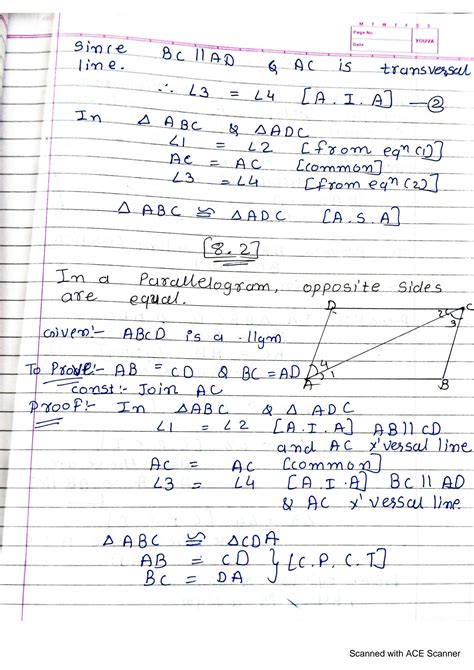 M T W T F S S
Page No.
Date
YOUVA
Since BC || AD & AC is transversal
line.
∴ ∠3 = ∠4 [A.I.A] — ②
In △ ABC & △ADC
∠1 = ∠2 [from eqⁿ (1)]
AC = AC [common]
∠3 = ∠4 [from eqⁿ (2)]
△ ABC ≅ △ADC [A.S.A]
[8.2]
In a Parallelogram, opposite sides
are equal.
Given:- ABCD is a ||gm
To Prove:- AB = CD & BC = AD
const:- Join AC
Proof:- In △ABC & △ ADC
∠1 = ∠2 [A.I.A] AB || CD
and AC x'versal line
AC = AC [common]
∠3 = ∠4 [A.I.A] BC || AD
& AC x'versal line.
△ ABC ≅ △CDA
AB = CD } [C.P.C.T]
BC = DA
D
C
2
3
4
1
A
B
Scanned with ACE Scanner